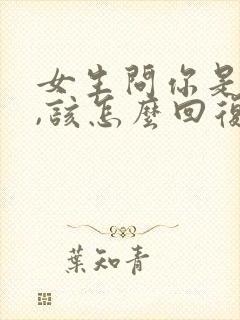 女生問你是
,該怎麼回復
葉知青